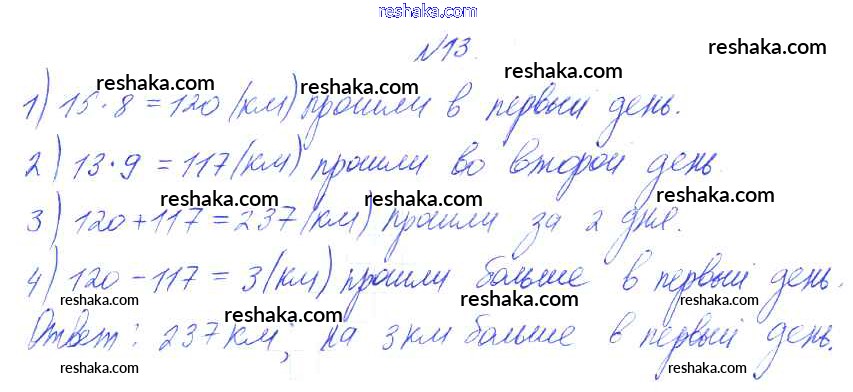 reshaka.com
№13.
reshaka.com
reshaka.com reshaka.com reshaka.com
1) 15·8=120 (км) прошли в первый день.
reshaka.com reshaka.com
2) 13·9=117 (км) прошли во второй день.
reshaka.com reshaka.com reshaka.com
3) 120+117=237 (км) прошли за 2 дня.
4) 120-117=3 (км) прошли больше в первый день.
reshaka.com reshaka.com reshaka.com reshaka.com
Ответ: 237 км; на 3 км больше в первый день.
reshaka.com reshaka.com reshaka.com reshaka.com